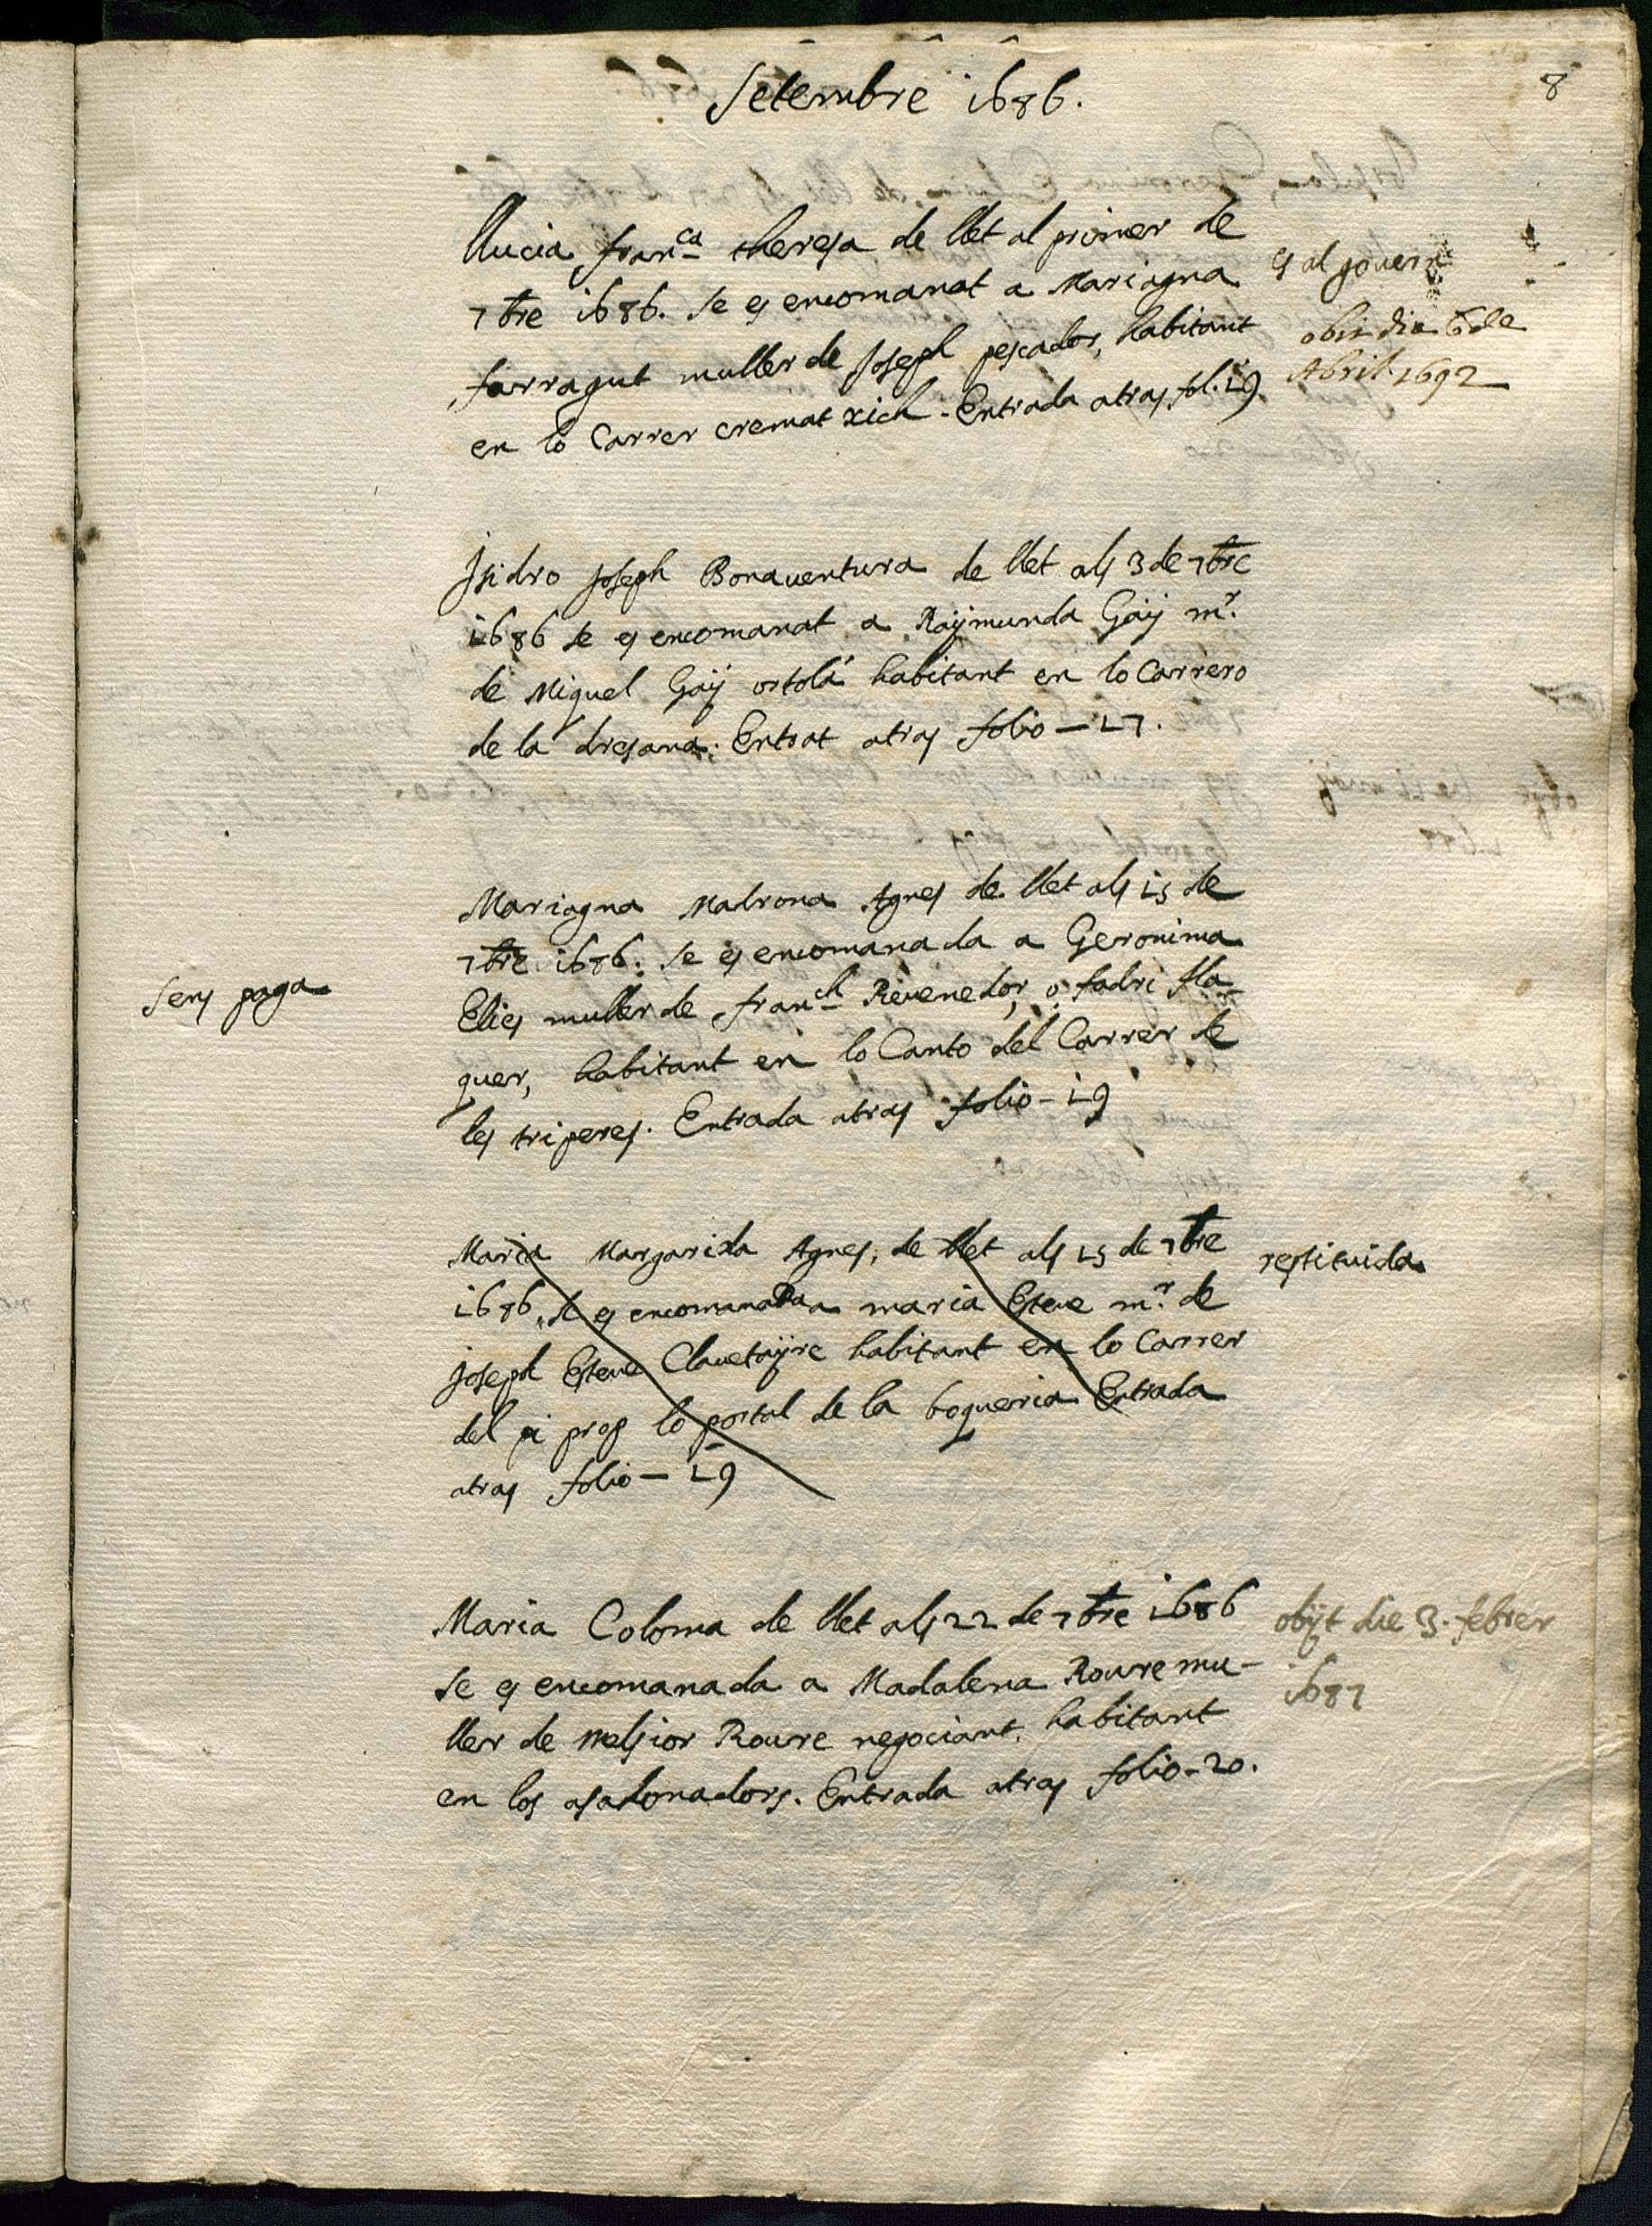 Setembre 1686.
8
Llucia franca theresa de llet al primer de
7bre 1686. se es encomanat a Mariagna
farragut muller de Joseph pescador, habitant
en lo Carrer cremat xich. Entrada atras fol. 19.
es al govern
obit dia 6 de
Abril 1692
Isidro Joseph Bonaventura de llet als 3 de 7bre
1686 se es encomanat a Raÿmunda Gaÿ mr.
de Miquel Gaÿ ortolá habitant en lo Carrero
de la dresana. Entrat atras folio - 17.
Mariagna Madrona Agnes de llet als 15 de
7bre 1686. se es encomanada a Geronima
Elies muller de franch Revenedor, o fadri fla-
quer, habitant en lo Canto del Carrer de
les triperes. Entrada atras folio - 19
sens paga
Maria Margarida Agnes, de llet als 15 de 7bre
1686. se es encomanada a maria Esteve mr. de
Joseph Esteve Clavetaÿre habitant en lo Carrer
del pi prop lo portal de la boqueria Entrada
atras folio - 19
restituida
Maria Coloma de llet als 22 de 7bre 1686
se es encomanada a Madalena Roure mu-
ller de Melsior Roure negociant, habitant
en los asahonadors. Entrada atras folio - 20.
obÿt die 3. febrer
1687